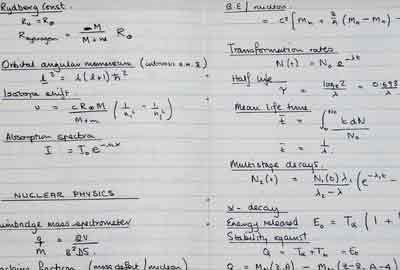 Rydberg Const.
R∞ = R∞
R hydrogen = M / M+m R∞
Orbital angular momentum (intrinsic a.m. s)
l² = l(l+1) ħ²
Isotope shift.
υ = cR∞M / M+m (1/n² - 1/n²)
Absorption spectra
I = I₀e
NUCLEAR PHYSICS
mass spectrometer
q/m = 2V / B²
fraction (mass defect / nucleon)
B.E / nucleon
= c² [Mn + (MH - Mn) -
Transformation rates
N(t) = N₀ e^-λt
Half life
τ = loge2 / λ = 0.693 /
Mean life time
t̄ = ∫ t dN / N₀
t̄ = 1/λ
Multistage decays.
N₂(t) = N₁(0) λ₁ / λ₂ - λ (e^-λ₁t -
α - decay
Energy released E₀ = Tα (1 +
Stability against
Q = Tα + = E₀
Q = M (Z,A) - M (Z-2, A-4)